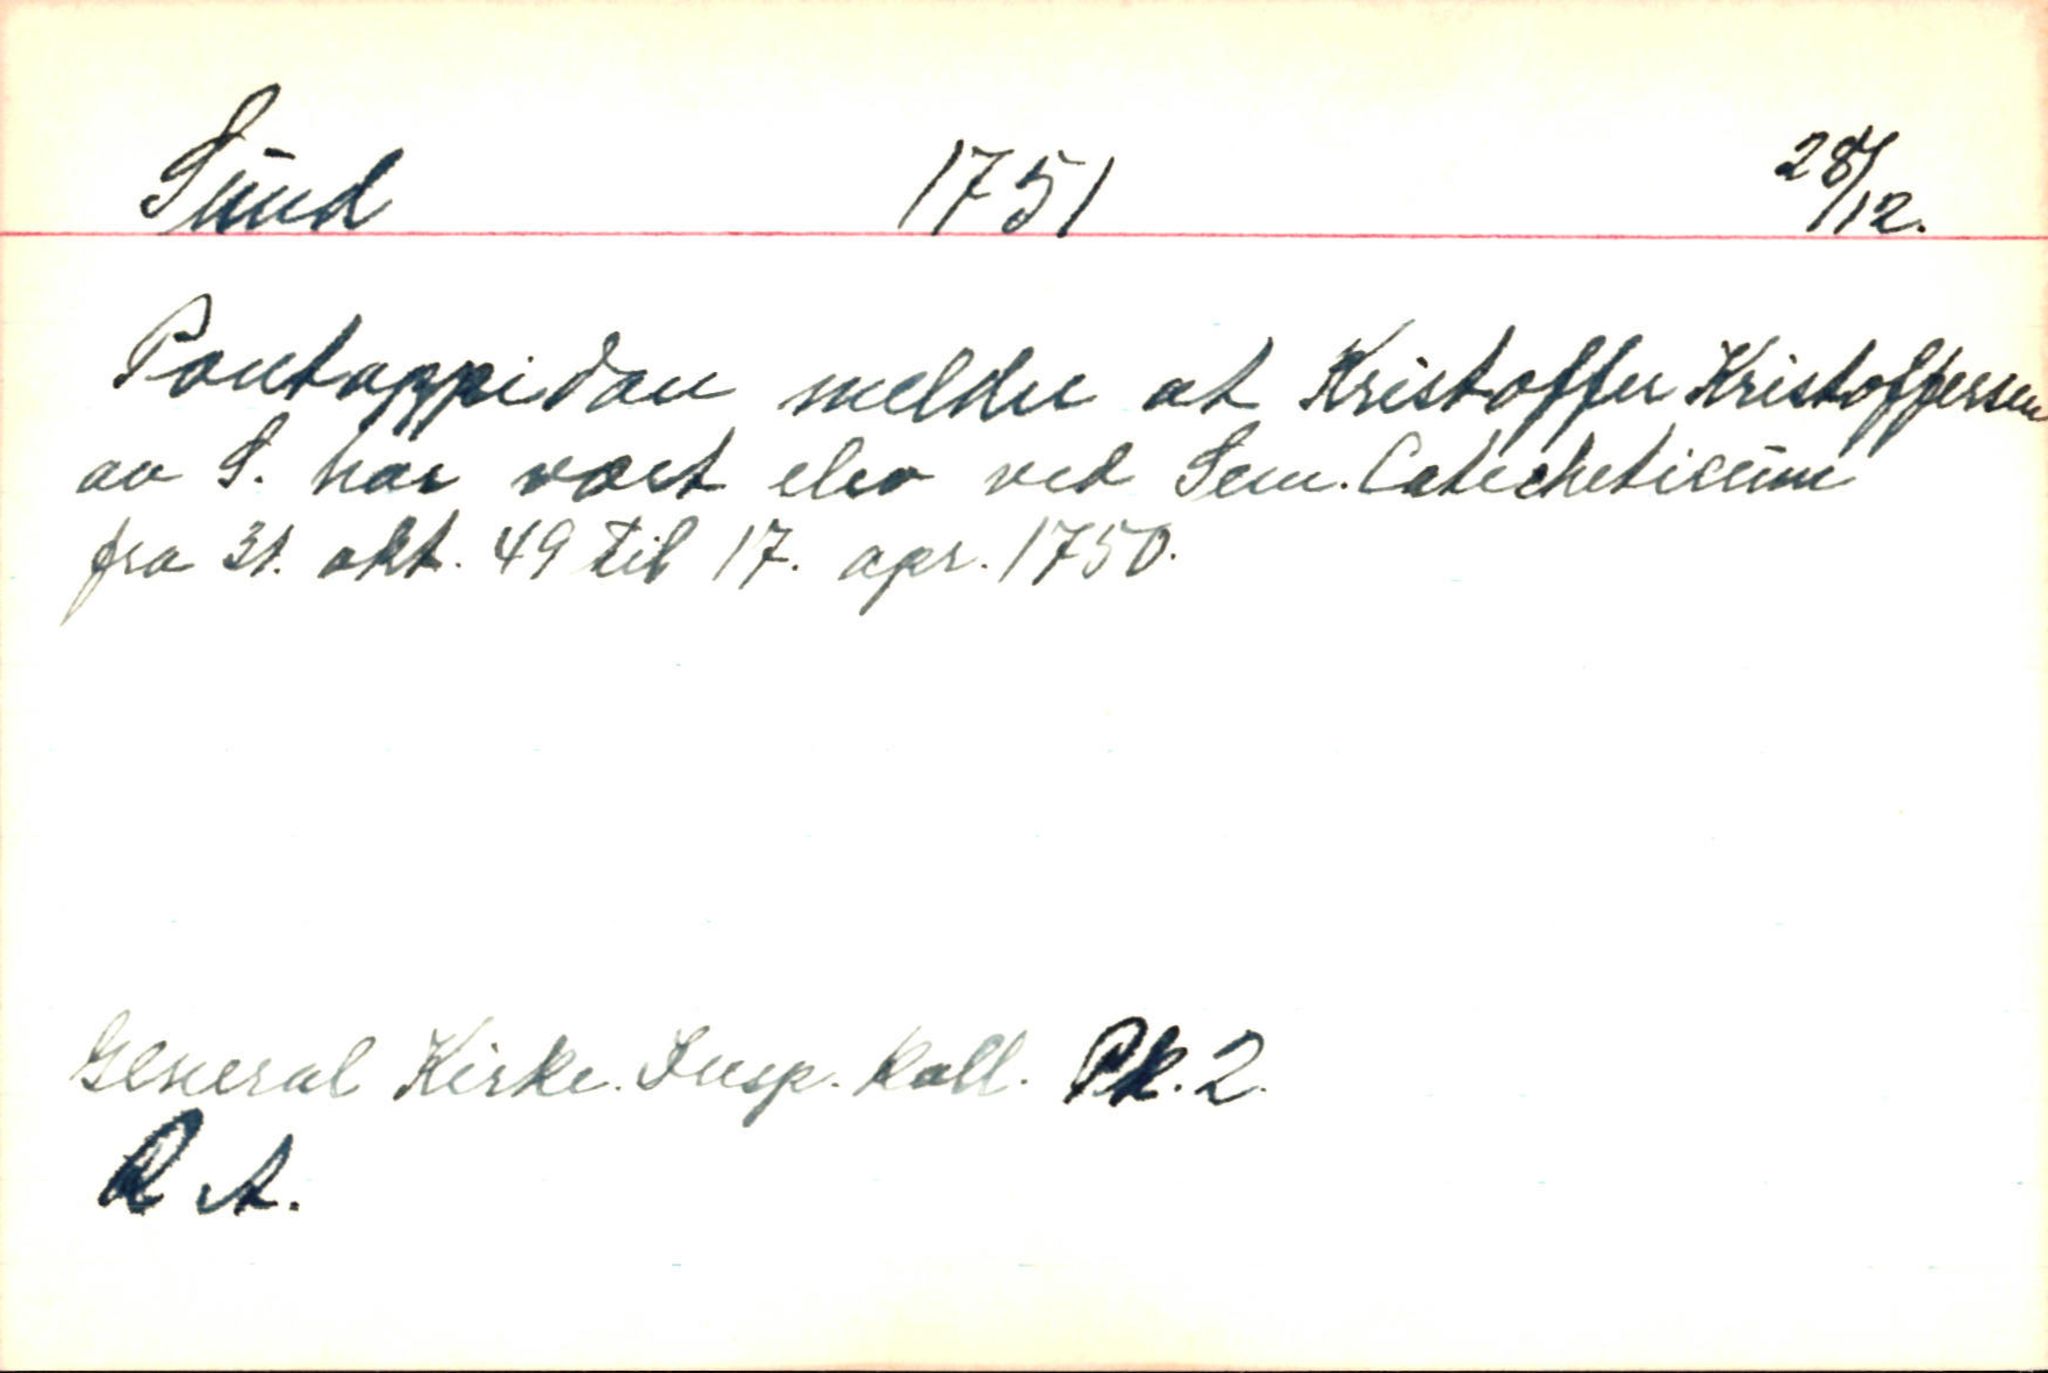 Sund 1751 28/12.
Pontoppidan melder at Kristoffer Kristoffersen
av S. har vært elev ved Sem. Catecheticum
fra 31. okt. 49 til 17. apr. 1750.
General Kirke. Insp. Koll. Pk. 2.
R A.